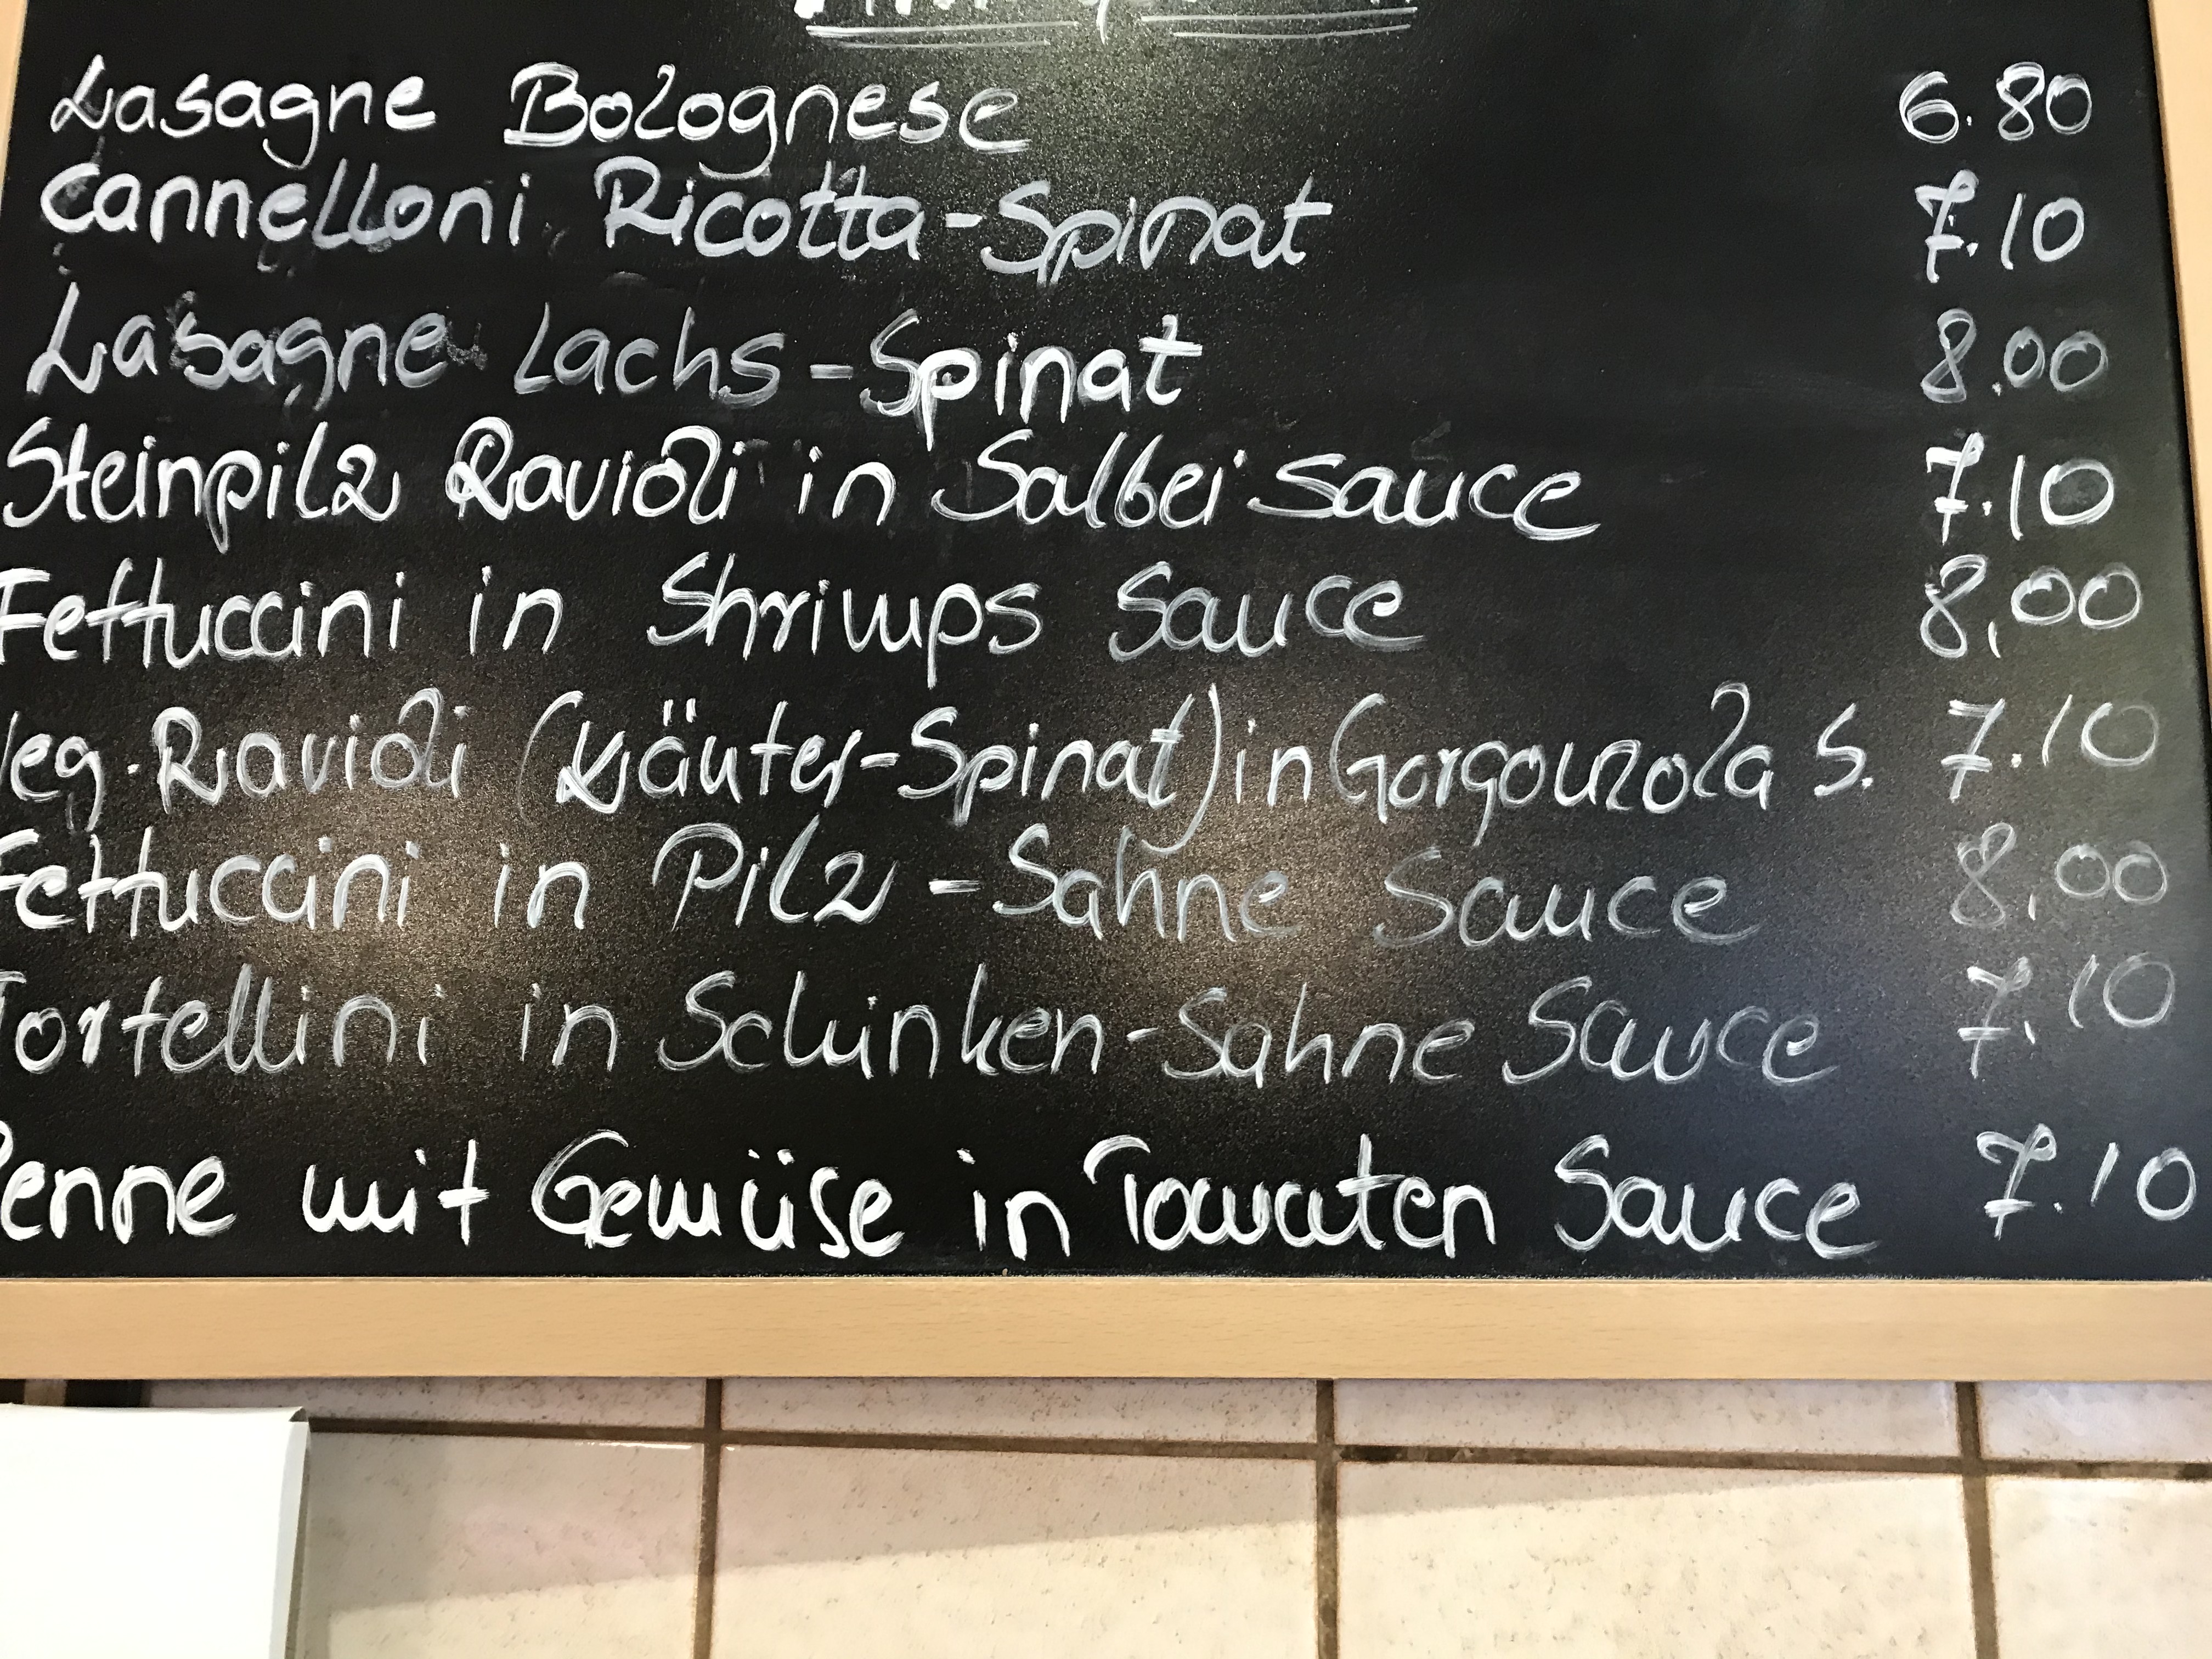 Lasagne Bolognese 6.80
Cannelloni Ricotta-Spinat 7.10
Lasagne Lachs-Spinat 8.00
Steinpilz Ravioli in Salbei Sauce 7.10
Fettuccini in Shrimps Sauce 8,00
Veg. Ravioli (Kräuter-Spinat) in Gorgonzola S. 7.10
Fettuccini in Pilz-Sahne Sauce 8,00
Tortellini in Schinken-Sahne Sauce 7.10
Penne mit Gemüse in Tomaten Sauce 7.10